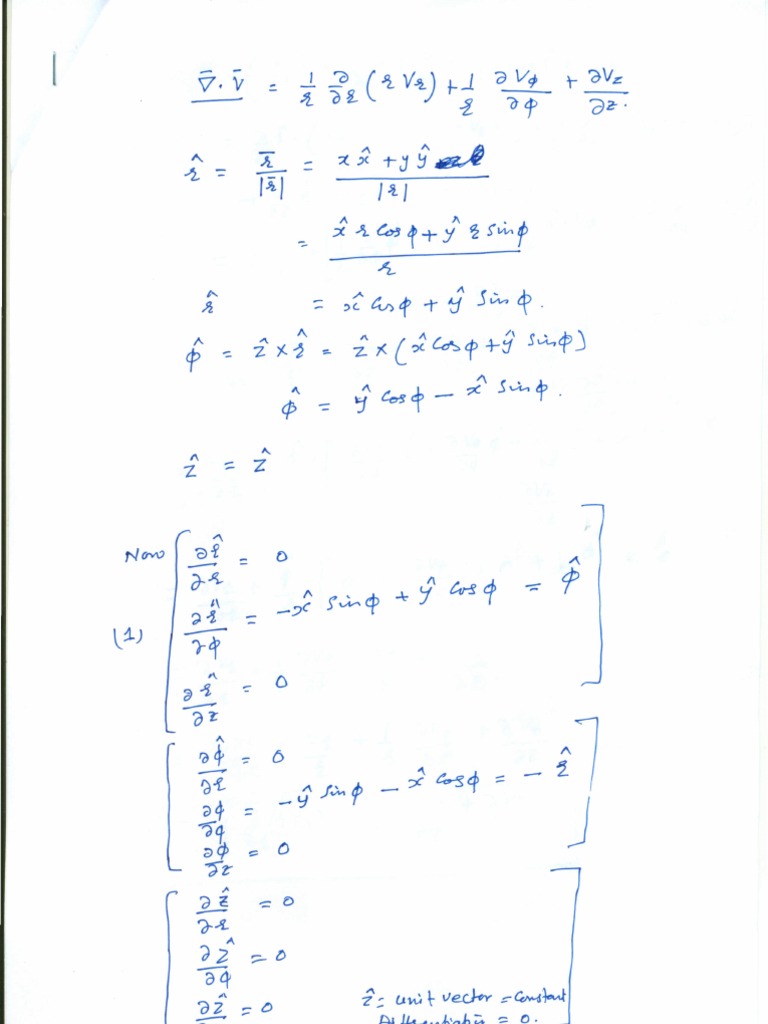 ∇̄ · V̄ = 1/r ∂/∂r (r Vr) + 1/r ∂Vφ/∂φ + ∂Vz/∂z.
r̂ = r̄/|r̄| = (x x̂ + y ŷ)/|r|
= (x̂ r cosφ + ŷ r sinφ)/r
r̂ = x̂ cosφ + ŷ sinφ.
φ̂ = ẑ × r̂ = ẑ × (x̂ cosφ + ŷ sinφ)
φ̂ = ŷ cosφ − x̂ sinφ.
ẑ = ẑ
Now ∂r̂/∂r = 0
(1) ∂r̂/∂φ = −x̂ sinφ + ŷ cosφ = φ̂
∂r̂/∂z = 0
∂φ̂/∂r = 0
∂φ/∂φ = −ŷ sinφ − x̂ cosφ = − r̂
∂φ/∂z = 0
∂ẑ/∂r = 0
∂ẑ/∂φ = 0
∂ẑ/ = 0 ẑ = unit vector = constant
Differentiation = 0.